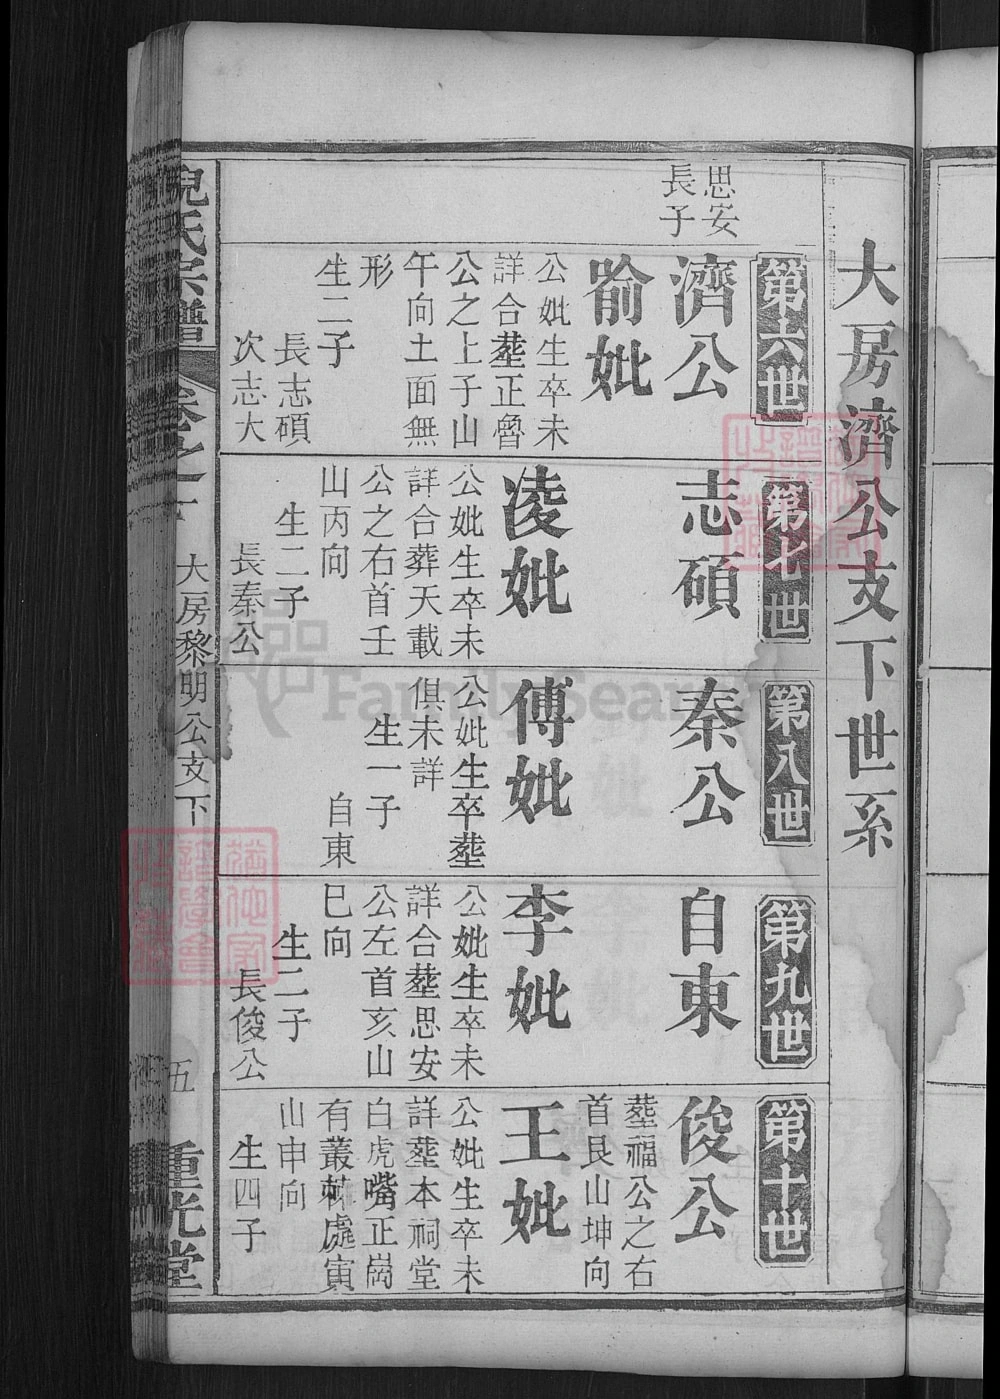 大房濟公支下世系
思安
長子
第六世
濟公
喻妣
公妣生卒未
詳合塟正魯
公之上子山
午向土面無
形
生二子
長志碩
次志大
第七世
志碩
凌妣
公妣生卒未
詳合葬天載
公之右首壬
山丙向
生二子
長秦公
第八世
秦公
傅妣
公妣生卒塟
俱未詳
生一子
自東
第九世
自東
李妣
公妣生卒未
詳合塟思安
公左首亥山
巳向
生二子
長俊公
第十世
俊公
塟福公之右
首艮山坤向
王妣
公妣生卒未
詳塟本祠堂
白虎嘴正崗
有叢棘處寅
山申向
生四子
倪氏宗譜
卷之
大房黎明公支下
五
重光堂
FamilySearch